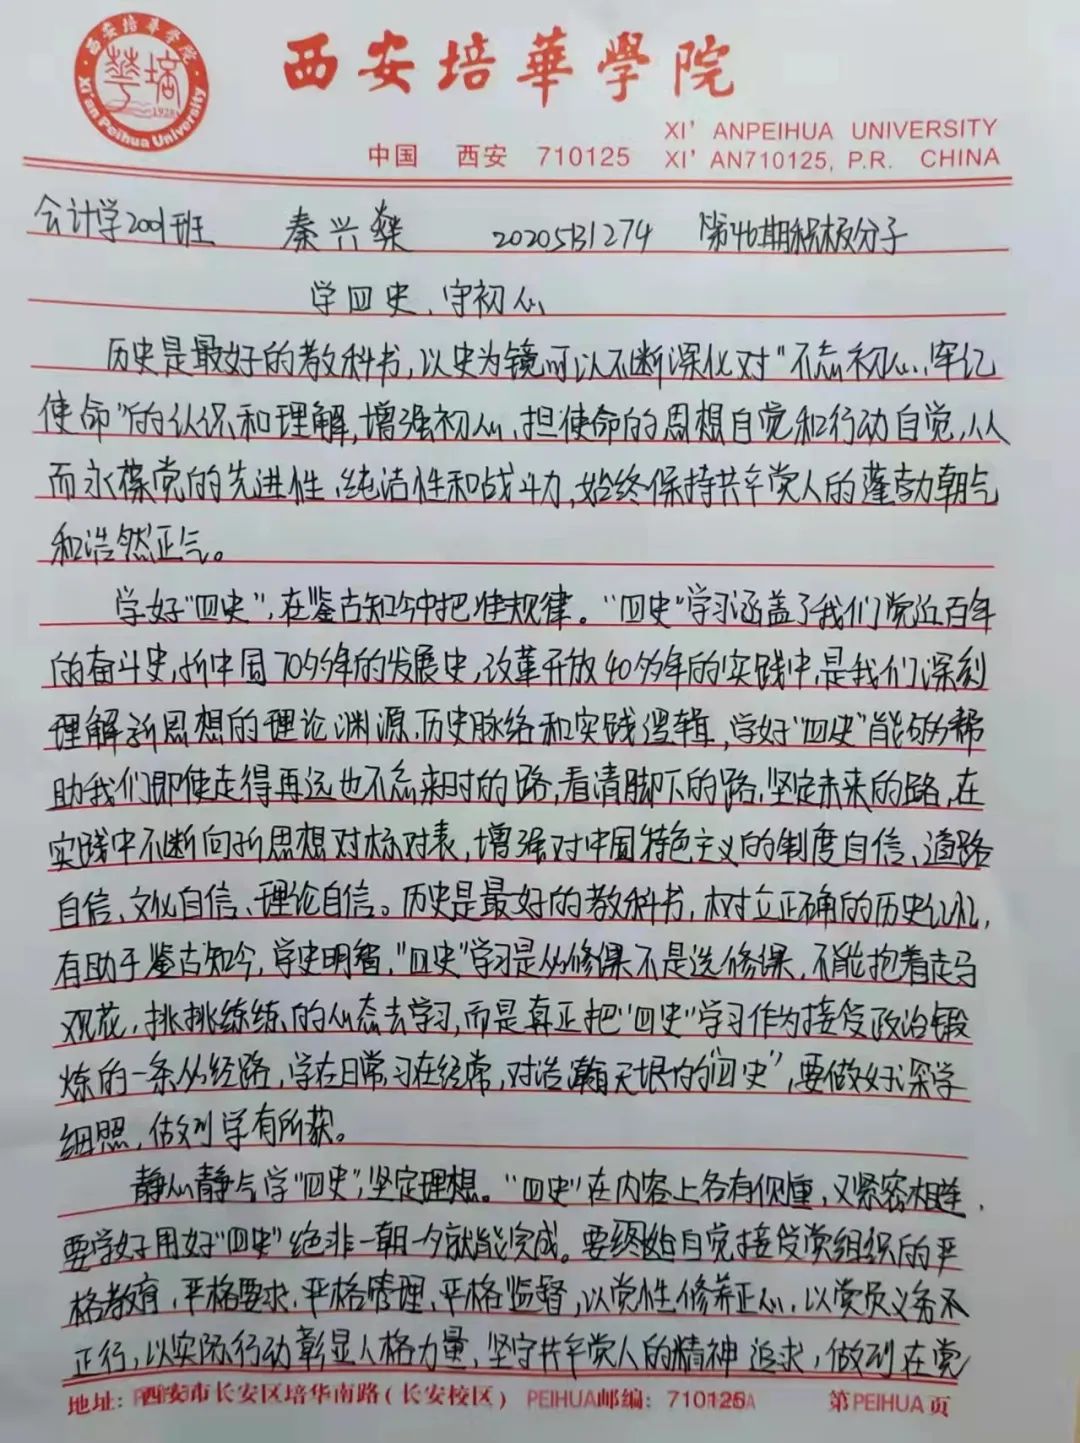 西安培華學院
西安培華學院
Xi'an Peihua University
1928
XI' ANPEIHUA UNIVERSITY
中国 西安 710125 XI' AN710125, P.R. CHINA
会计学2001班 秦兴燊 2020531274 第46期积极分子
学四史、守初心
历史是最好的教科书,以史为镜可以不断深化对"不忘初心、牢记
使命"的认识和理解,增强初心、担使命的思想自觉和行动自觉,从
而永葆党的先进性、纯洁性和战斗力,始终保持共产党人的蓬勃朝气
和浩然正气。
学好"四史",在鉴古知今中把准规律。"四史"学习涵盖了我们党近百年
的奋斗史,新中国70多年的发展史,改革开放40多年的实践中,是我们深刻
理解新思想的理论渊源、历史脉络和实践逻辑,学好"四史"能够帮
助我们即使走得再远也不忘来时的路,看清脚下的路,坚定未来的路,在
实践中不断向新思想对标对表,增强对中国特色主义的制度自信、道路
自信、文化自信、理论自信。历史是最好的教科书,树立正确的历史记忆,
有助于鉴古知今,学史明智,"四史"学习是必修课不是选修课,不能抱着走马
观花,挑挑练练的心态去学习,而是真正把"四史"学习作为接受政治锻
炼的一条必经路,学在日常,习在经常,对浩瀚无垠的"四史",要做好深学
细照,做到学有所获。
静心静气学"四史",坚定理想。"四史"在内容上各有侧重,又紧密相连,
要学好用好"四史"绝非一朝一夕就能完成。要终始自觉接受党组织的严
格教育、严格要求、严格管理、严格监督,以党性修养正心,以党员义务
正行,以实际行动彰显人格力量,坚守共产党人的精神追求,做到在党
地址:西安市长安区培华南路(长安校区) PEIHUA邮编:710125 第PEIHUA页